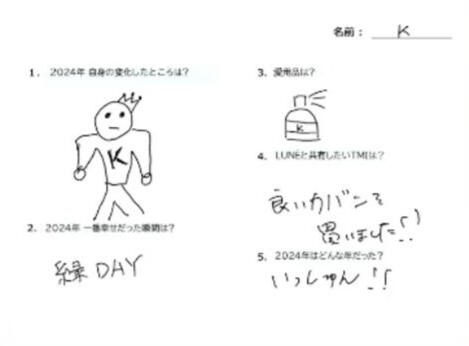 名前： K
1. 2024年 自身の変化したところは？
K
2. 2024年 一番幸せだった瞬間は？
緑 DAY
3. 愛用品は？
K
4. LUNEと共有したいTMIは？
良いカバンを
買いました!!
5. 2024年はどんな年だった？
いっしゅん!!